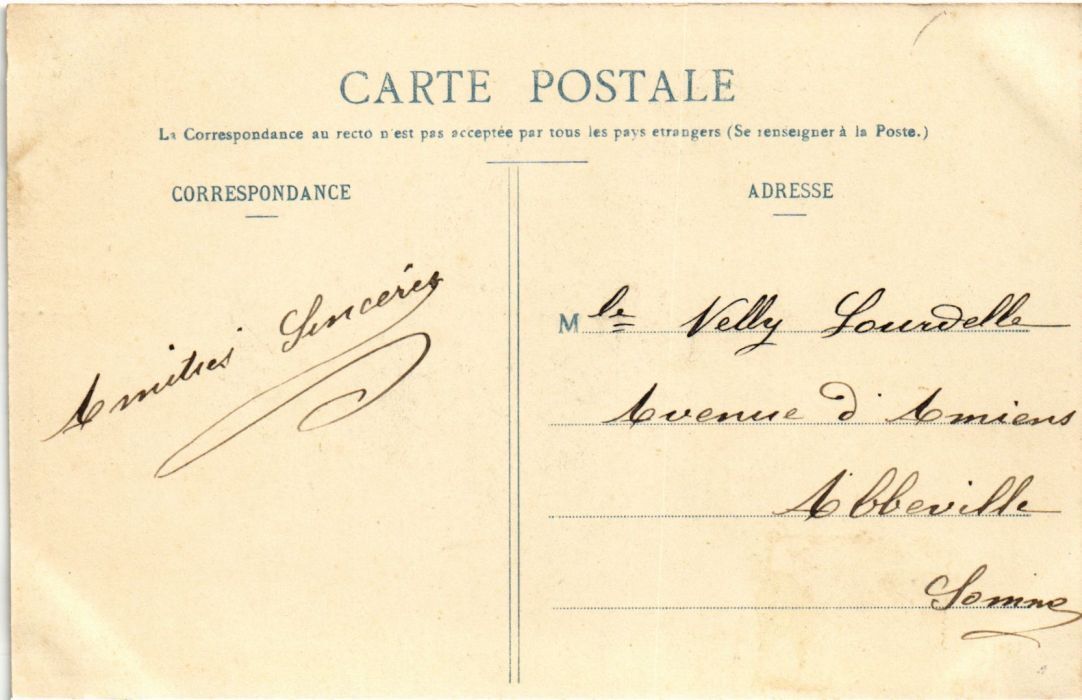 CARTE POSTALE
La Correspondance au recto n'est pas acceptée par tous les pays etrangers (Se renseigner à la Poste.)
CORRESPONDANCE
Amitiés Sincères
ADRESSE
Mlle Nelly Lourdelle
Avenue d'Amiens
Abbeville
Somme